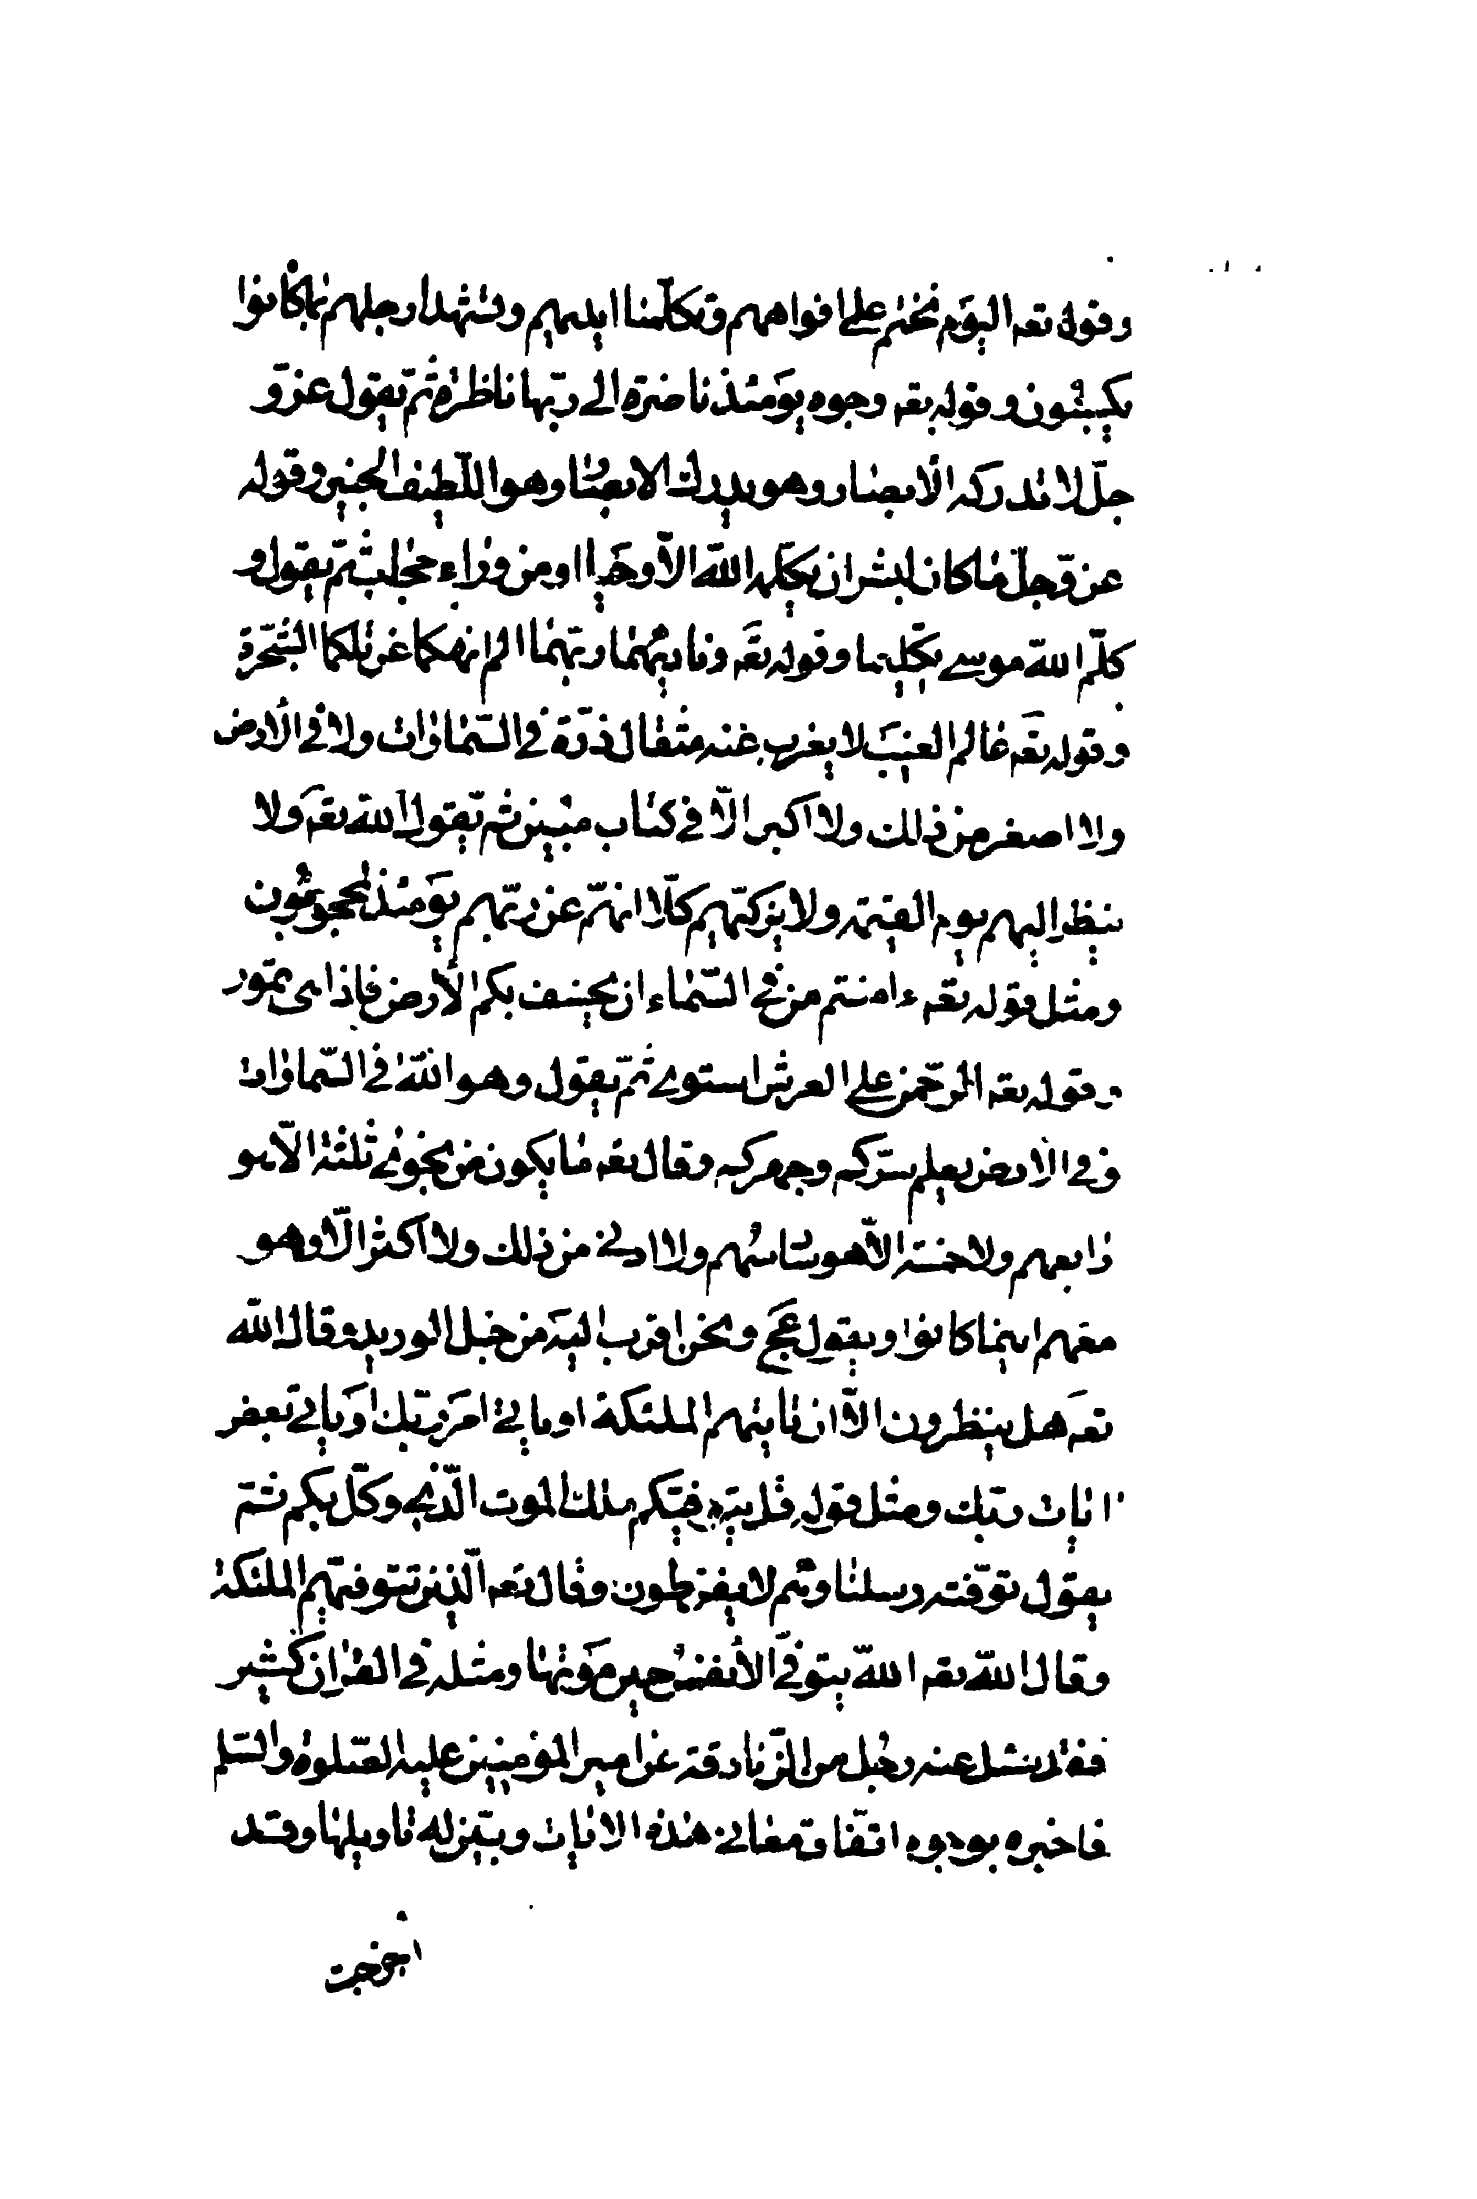 وقوله تعه اليوم نختم على افواههم وتكلمنا ايديهم وتشهد ارجلهم بما كانوا
يكسبون وقوله تعه وجوه يومئذ ناضرة الى ربّها ناظرة ثمّ يقول عزّ و
جلّ لا تدركه الأبصار وهو يدرك الابصار وهو اللّطيف الخبير وقوله
عزّ وجلّ ما كان لبشر ان يكلّمه اللّه الاّ وحيا او من وراء حجاب ثمّ يقول و
كلّم اللّه موسى تكليما وقوله تعه وناديهما ربّهما الم انهكما عن تلكما الشّجرة
وقوله تعه عالم الغيب لا يعزب عنه مثقال ذرّة في السّماوات ولا في الأرض
ولا اصغر من ذلك ولا اكبر الاّ في كتاب مبين ثم يقول اللّه تعه ولا
ينظر اليهم يوم القيمة ولا يزكّيهم كلّا انهّم عن ربّهم يومئذ لمحجوبون
ومثل قوله تعه ءامنتم من في السّماء ان يخسف بكم الأرض فاذا هى تمور
وقوله تعه الرّحمن على العرش استوى ثمّ يقول وهو اللّه في السّماوات
وفي الارض يعلم سرّكم وجهركم وقال تعه ما يكون من نجوى ثلثة الّا هو
رابعهم ولا خمسة الاّ هو سادسهم ولا ادنى من ذلك ولا اكثر الّا وهو
معهم اينما كانوا ويقول عج ونحن اقرب اليه من حبل الوريد وقال اللّه
تعه هل ينظرون الاّ ان تاتيهم الملئكة او ياتي امر ربّك او ياتي بعض
ايات ربّك ومثل قوله قل يتوفّيكم ملك الموت الّذي وكّل بكم ثمّ
يقول توفّته رسلنا وهم لا يفرّطون وقال تعه الّذين تتوفّيهم الملئكة
وقال اللّه تعه اللّه يتوفّى الأنفس حين موتها ومثله في القران كثير
فقد سئل عنه رجل من الزّنادقة عن امير المؤمنين عليه الصّلوة والسّلم
فاخبره بوجوه اتّفاق معانى هذه الايات وبيّن له تاويلها وقد
اخرجت